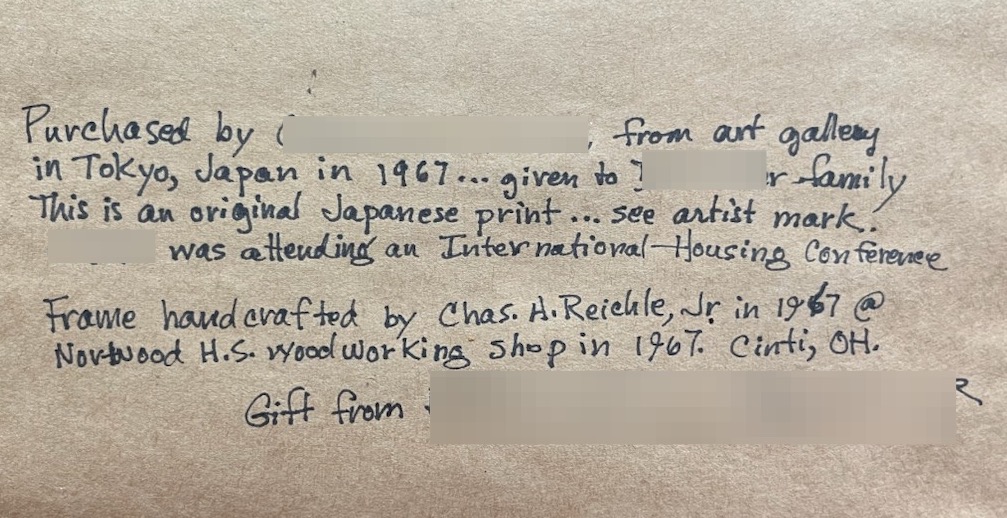 Purchased by , from art gallery
in Tokyo, Japan in 1967... given to family
This is an original Japanese print... see artist mark.
was attending an International Housing Conference
Frame handcrafted by Chas. H. Reichle, Jr. in 1967 @
Norwood H.S. woodworking shop in 1967. Cinti, OH.
Gift from